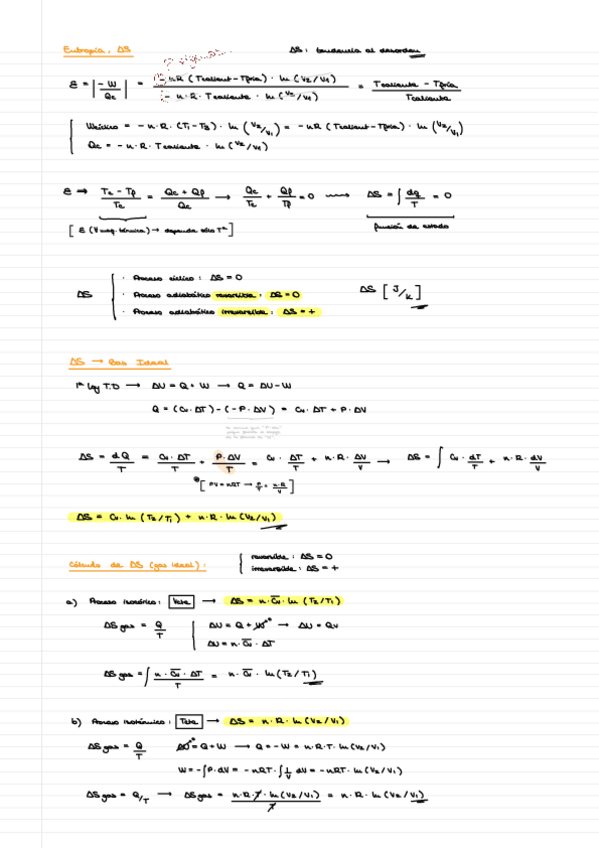 Entropía, ΔS
ΔS: tendencia al desorden
ε = |-W/Qc| = -nR (Tcaliente-Tfría) · ln (V2/V1) / -n·R·Tcaliente · ln (V2/V1) = Tcaliente - Tfría / Tcaliente
Wcíclico = -n·R·(T1-T3)·ln (V2/V1) = -nR (Tcaliente-Tfría)·ln (V2/V1)
Qc = -n·R·Tcaliente·ln (V2/V1)
ε ⇒ Tc - Tf / Tc = Qc + Qf / Qc → Qc/Tc + Qf/Tf = 0 ⟿ ΔS = ∫ dq/T = 0
[ε (∀ maq. térmica) → depende sólo Tª]
función de estado
ΔS
· Proceso cíclico: ΔS = 0
· Proceso adiabático reversible: ΔS = 0
· Proceso adiabático irreversible: ΔS = +
ΔS [J/K]
ΔS → Gas Ideal
1ª ley T.D → ΔU = Q + W → Q = ΔU - W
Q = (Cv·ΔT) - (-P·ΔV) = Cv·ΔT + P·ΔV
ΔS = dQ/T = Cv·ΔT/T + P·ΔV/T = Cv·ΔT/T + n·R·ΔV/V → ΔS = ∫ Cv·dT/T + n·R·dV/V
[PV = nRT → P/T = n·R/V]
ΔS = Cv·ln (T2/T1) + n·R·ln (V2/V1)
Cálculo de ΔS (gas ideal):
reversible: ΔS = 0
irreversible: ΔS = +
a) Proceso isocórico: Vcte → ΔS = n·Cv·ln (T2/T1)
ΔS gas = Q/T
ΔU = Q + W → ΔU = Qv
ΔU = n·Cv·ΔT
ΔS gas = ∫ n·Cv·ΔT/T = n·Cv·ln (T2/T1)
b) Proceso isotérmico: Tcte → ΔS = n·R·ln (V2/V1)
ΔS gas = Q/T
ΔU = Q + W → Q = -W = n·R·T·ln (V2/V1)
W = -∫P·dV = -nRT·∫1/V dV = -nRT·ln (V2/V1)
ΔS gas = Q/T → ΔS gas = n·R·T·ln (V2/V1) / T = n·R·ln (V2/V1)